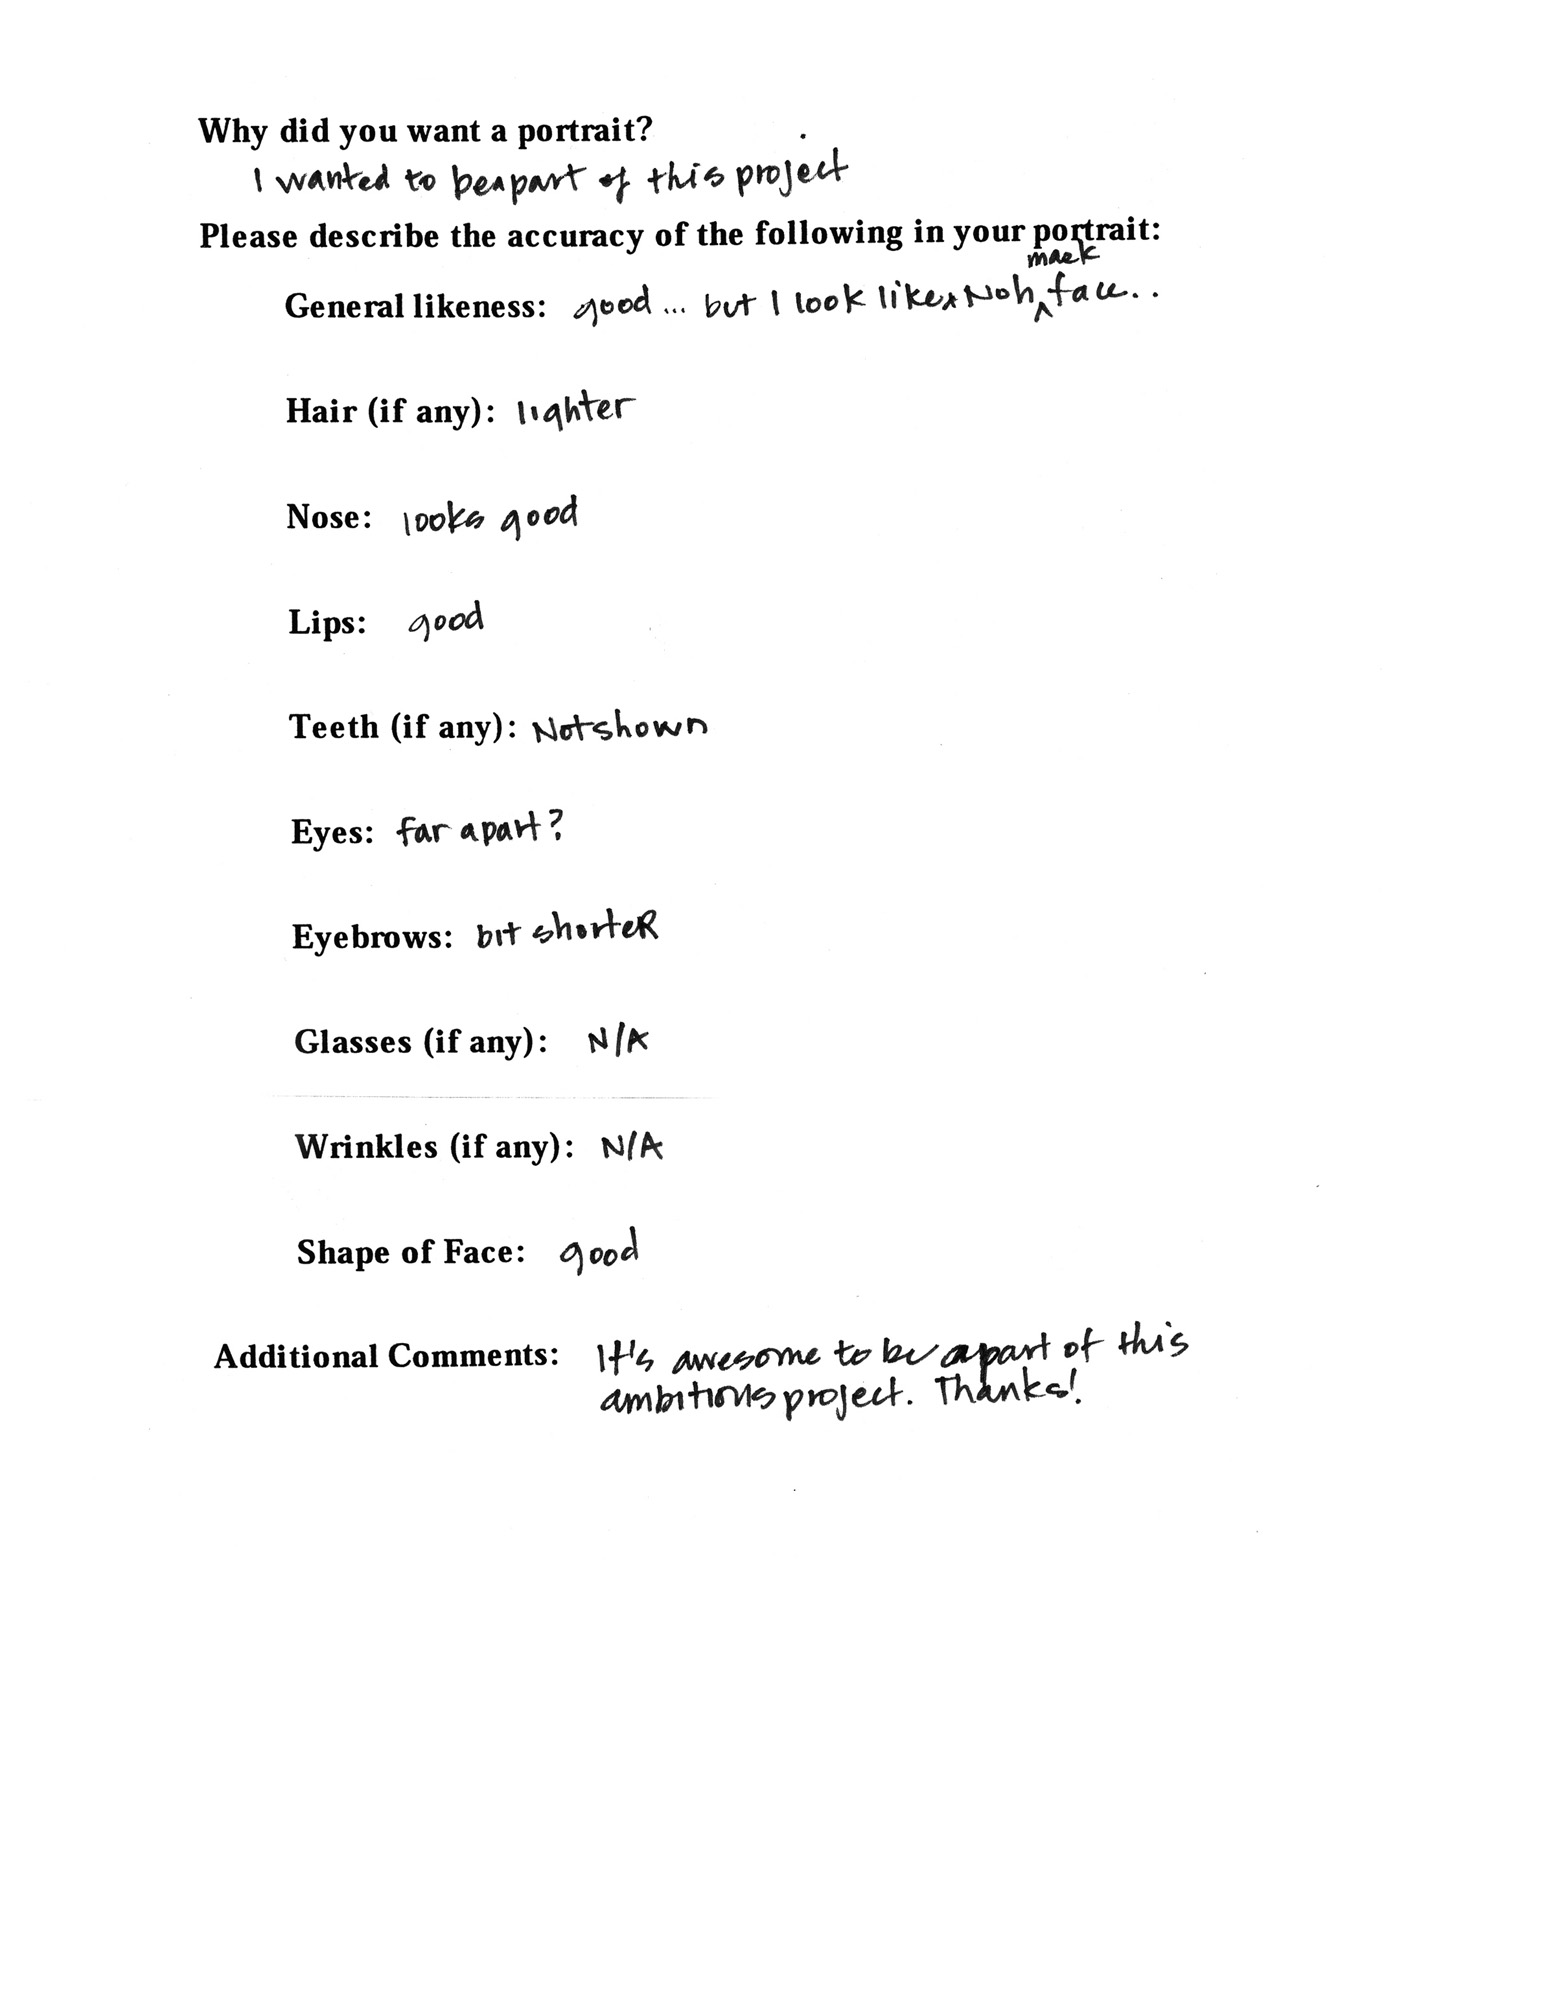 Why did you want a portrait?
I wanted to be a part of this project
Please describe the accuracy of the following in your portrait:
General likeness: good... but I look like a Noh mask face..
Hair (if any): lighter
Nose: looks good
Lips: good
Teeth (if any): Not shown
Eyes: far apart?
Eyebrows: bit shorter
Glasses (if any): N/A
Wrinkles (if any): N/A
Shape of Face: good
Additional Comments: It's awesome to be a part of this
ambitious project. Thanks!